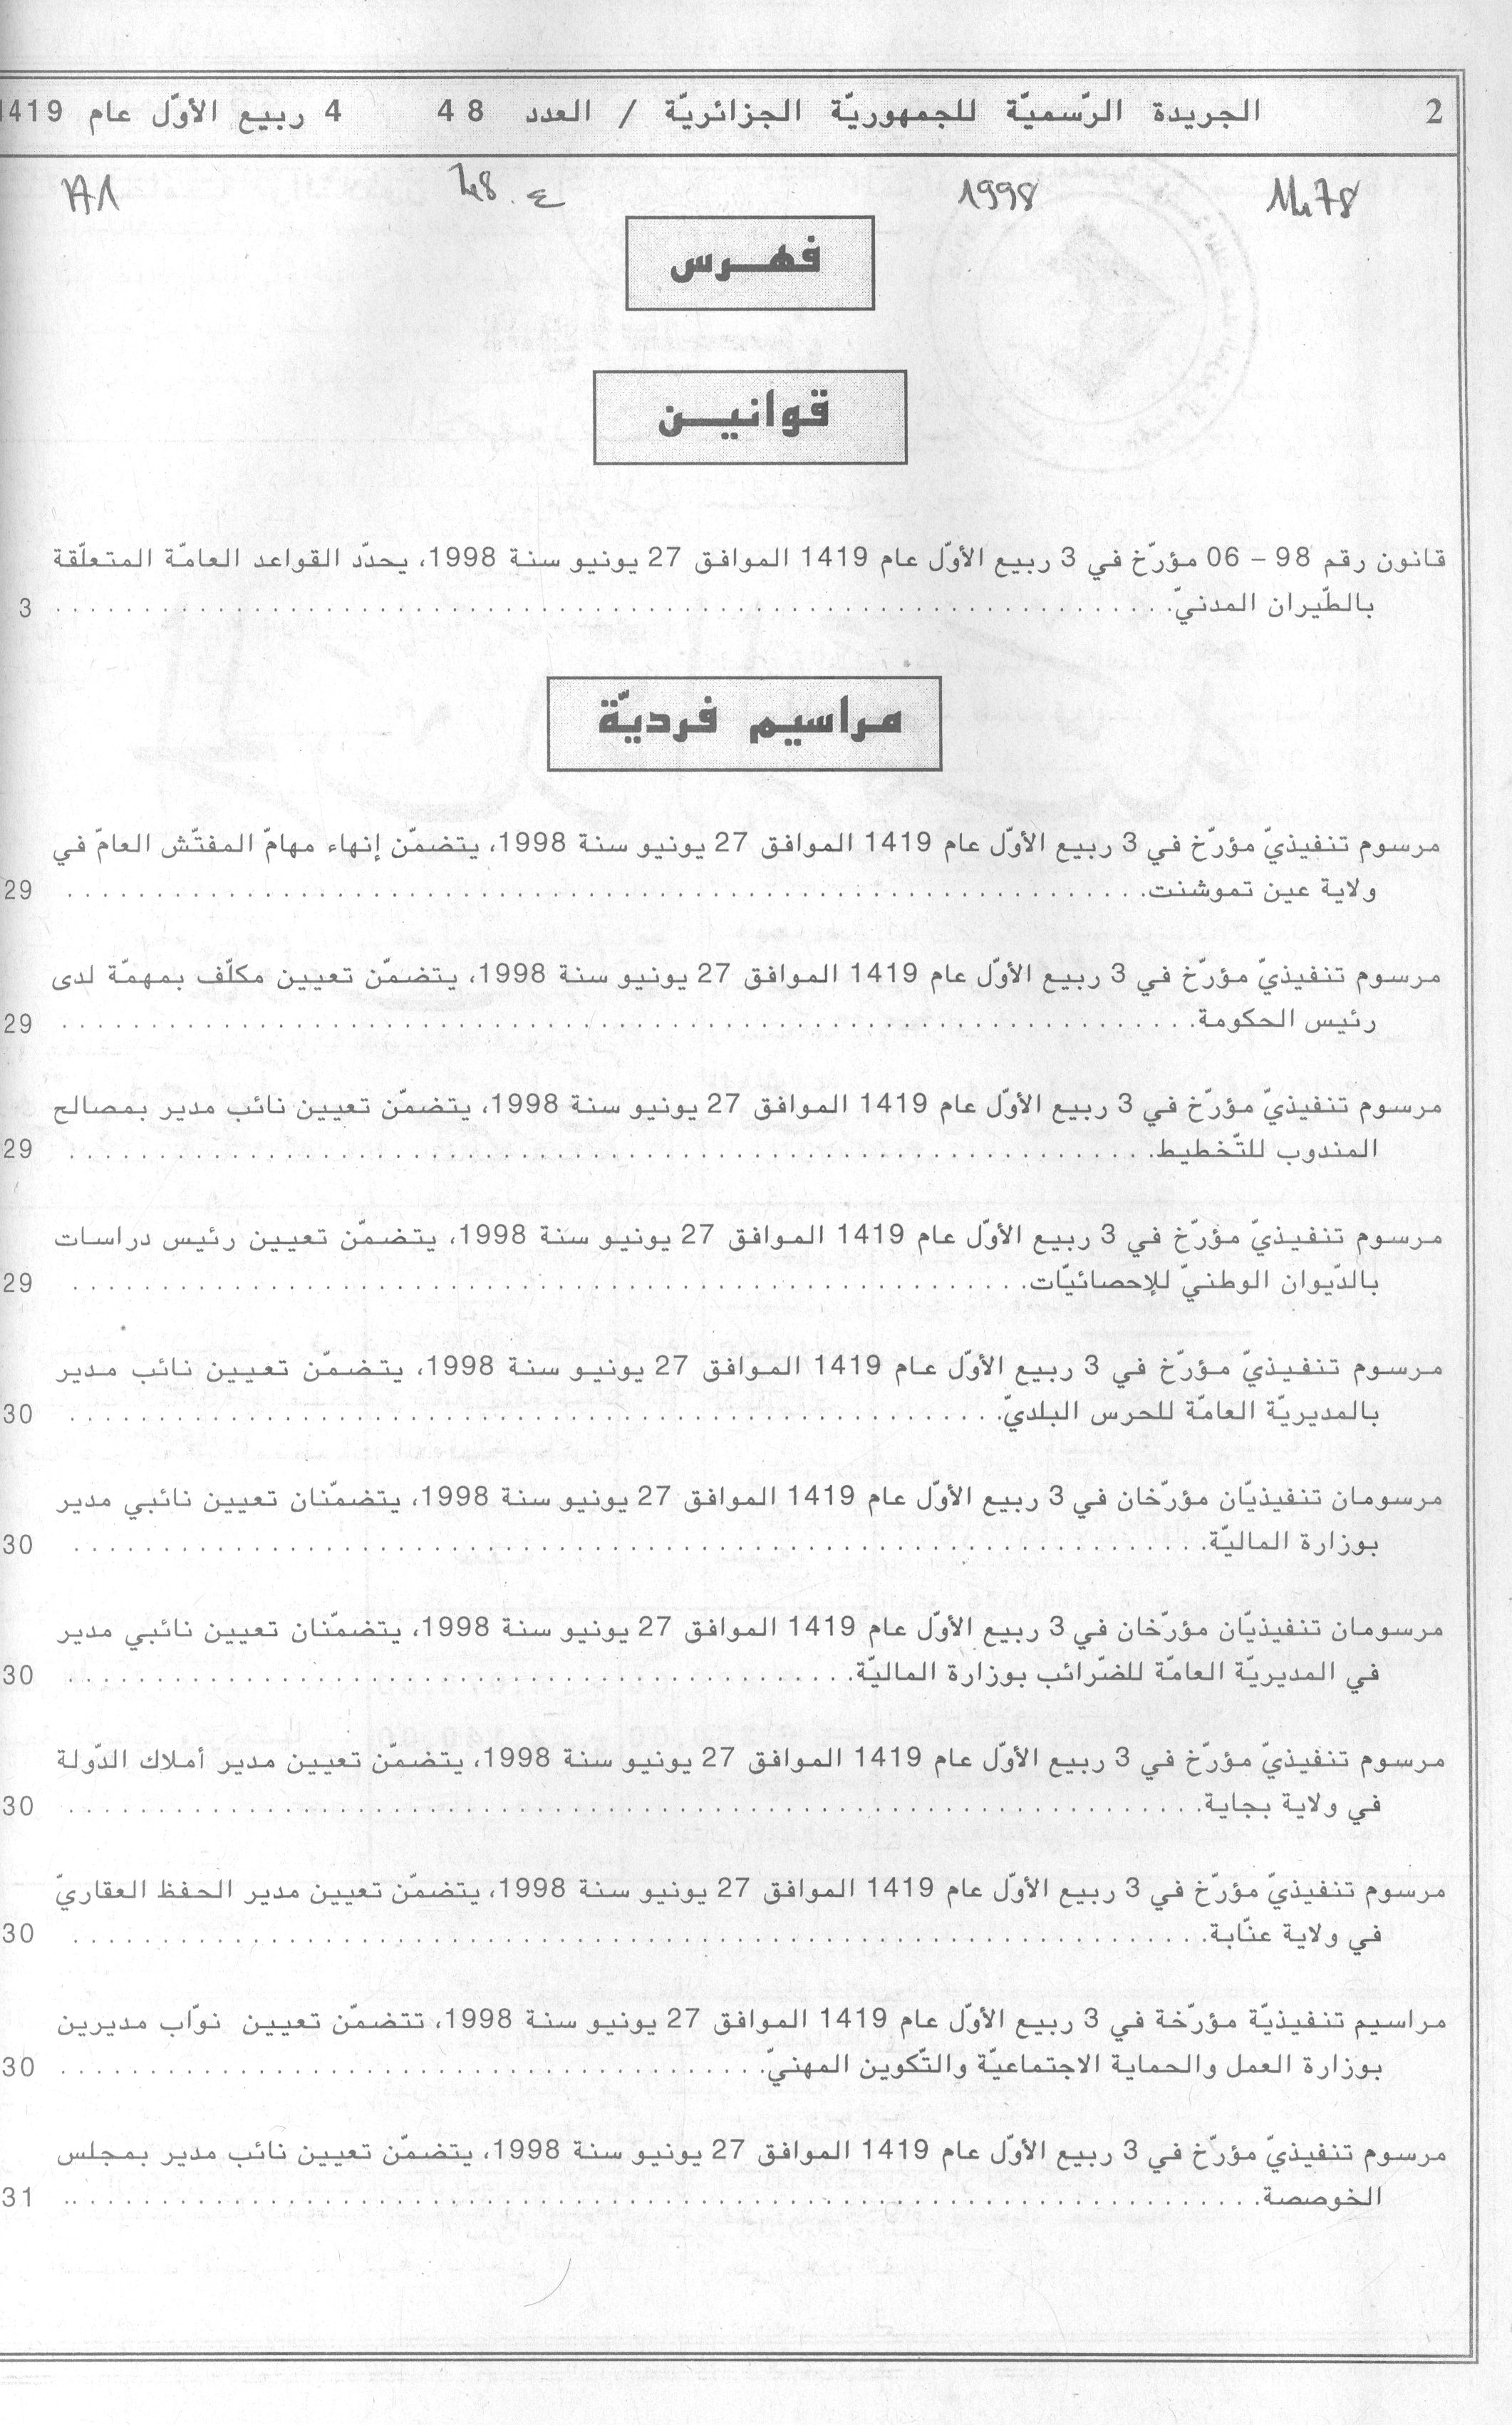 2 الجريدة الرّسميّة للجمهوريّة الجزائريّة / العدد 48 4 ربيع الأوّل عام 1419
1998 48 ع
فهرس
قوانين
قانون رقم 98 – 06 مؤرّخ في 3 ربيع الأوّل عام 1419 الموافق 27 يونيو سنة 1998، يحدّد القواعد العامّة المتعلّقة
بالطّيران المدنيّ. 3
مراسيم فرديّة
مرسوم تنفيذيّ مؤرّخ في 3 ربيع الأوّل عام 1419 الموافق 27 يونيو سنة 1998، يتضمّن إنهاء مهامّ المفتّش العامّ في
ولاية عين تموشنت. 29
مرسوم تنفيذيّ مؤرّخ في 3 ربيع الأوّل عام 1419 الموافق 27 يونيو سنة 1998، يتضمّن تعيين مكلّف بمهمّة لدى
رئيس الحكومة. 29
مرسوم تنفيذيّ مؤرّخ في 3 ربيع الأوّل عام 1419 الموافق 27 يونيو سنة 1998، يتضمّن تعيين نائب مدير بمصالح
المندوب للتّخطيط. 29
مرسوم تنفيذيّ مؤرّخ في 3 ربيع الأوّل عام 1419 الموافق 27 يونيو سنة 1998، يتضمّن تعيين رئيس دراسات
بالدّيوان الوطنيّ للإحصائيّات. 29
مرسوم تنفيذيّ مؤرّخ في 3 ربيع الأوّل عام 1419 الموافق 27 يونيو سنة 1998، يتضمّن تعيين نائب مدير
بالمديريّة العامّة للحرس البلديّ. 30
مرسومان تنفيذيّان مؤرّخان في 3 ربيع الأوّل عام 1419 الموافق 27 يونيو سنة 1998، يتضمّنان تعيين نائبي مدير
بوزارة الماليّة. 30
مرسومان تنفيذيّان مؤرّخان في 3 ربيع الأوّل عام 1419 الموافق 27 يونيو سنة 1998، يتضمّنان تعيين نائبي مدير
في المديريّة العامّة للضّرائب بوزارة الماليّة. 30
مرسوم تنفيذيّ مؤرّخ في 3 ربيع الأوّل عام 1419 الموافق 27 يونيو سنة 1998، يتضمّن تعيين مدير أملاك الدّولة
في ولاية بجاية. 30
مرسوم تنفيذيّ مؤرّخ في 3 ربيع الأوّل عام 1419 الموافق 27 يونيو سنة 1998، يتضمّن تعيين مدير الحفظ العقاريّ
في ولاية عنّابة. 30
مراسيم تنفيذيّة مؤرّخة في 3 ربيع الأوّل عام 1419 الموافق 27 يونيو سنة 1998، تتضمّن تعيين نوّاب مديرين
بوزارة العمل والحماية الاجتماعيّة والتّكوين المهنيّ. 30
مرسوم تنفيذيّ مؤرّخ في 3 ربيع الأوّل عام 1419 الموافق 27 يونيو سنة 1998، يتضمّن تعيين نائب مدير بمجلس
الخوصصة. 31